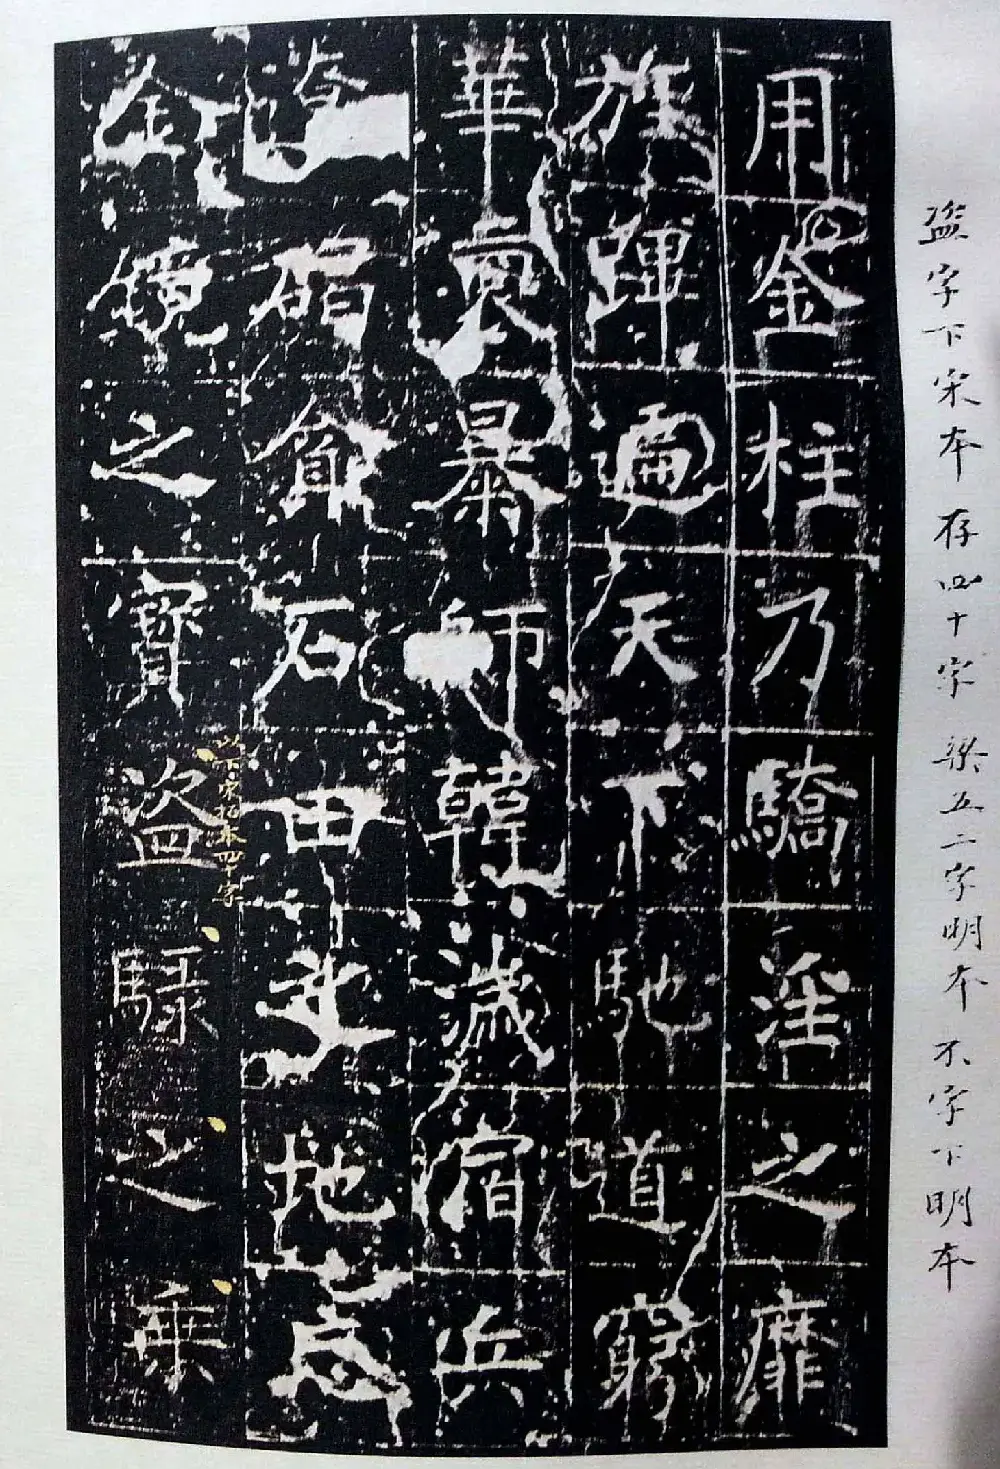 盜字下宋本存四十字 梁五二字明本 不字下明本
用金柱乃驕淫之靡
旌蹕遍天下馳道窮
華裔暴師韓濊宿兵
碣貪石田地忘
金鏡之寶盜騄之乘
以下宋拓本四十字